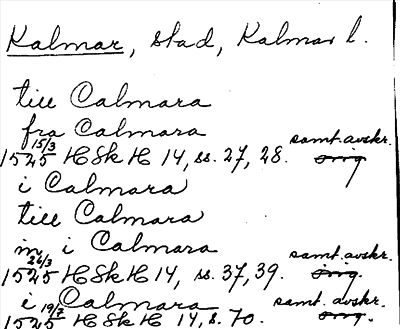 Kalmar, stad, Kalmar l.
till Calmara
fra Calmara
1525 15/3 HSkH 14, ss. 27, 28. samt. avskr. orig
i Calmara
till Calmara
in i Calmara
1525 26/3 HSkH 14, ss. 37, 39. samt. avskr. orig.
i Calmara
1525 19/7 HSkH 14, s. 70. samt. avskr. orig.